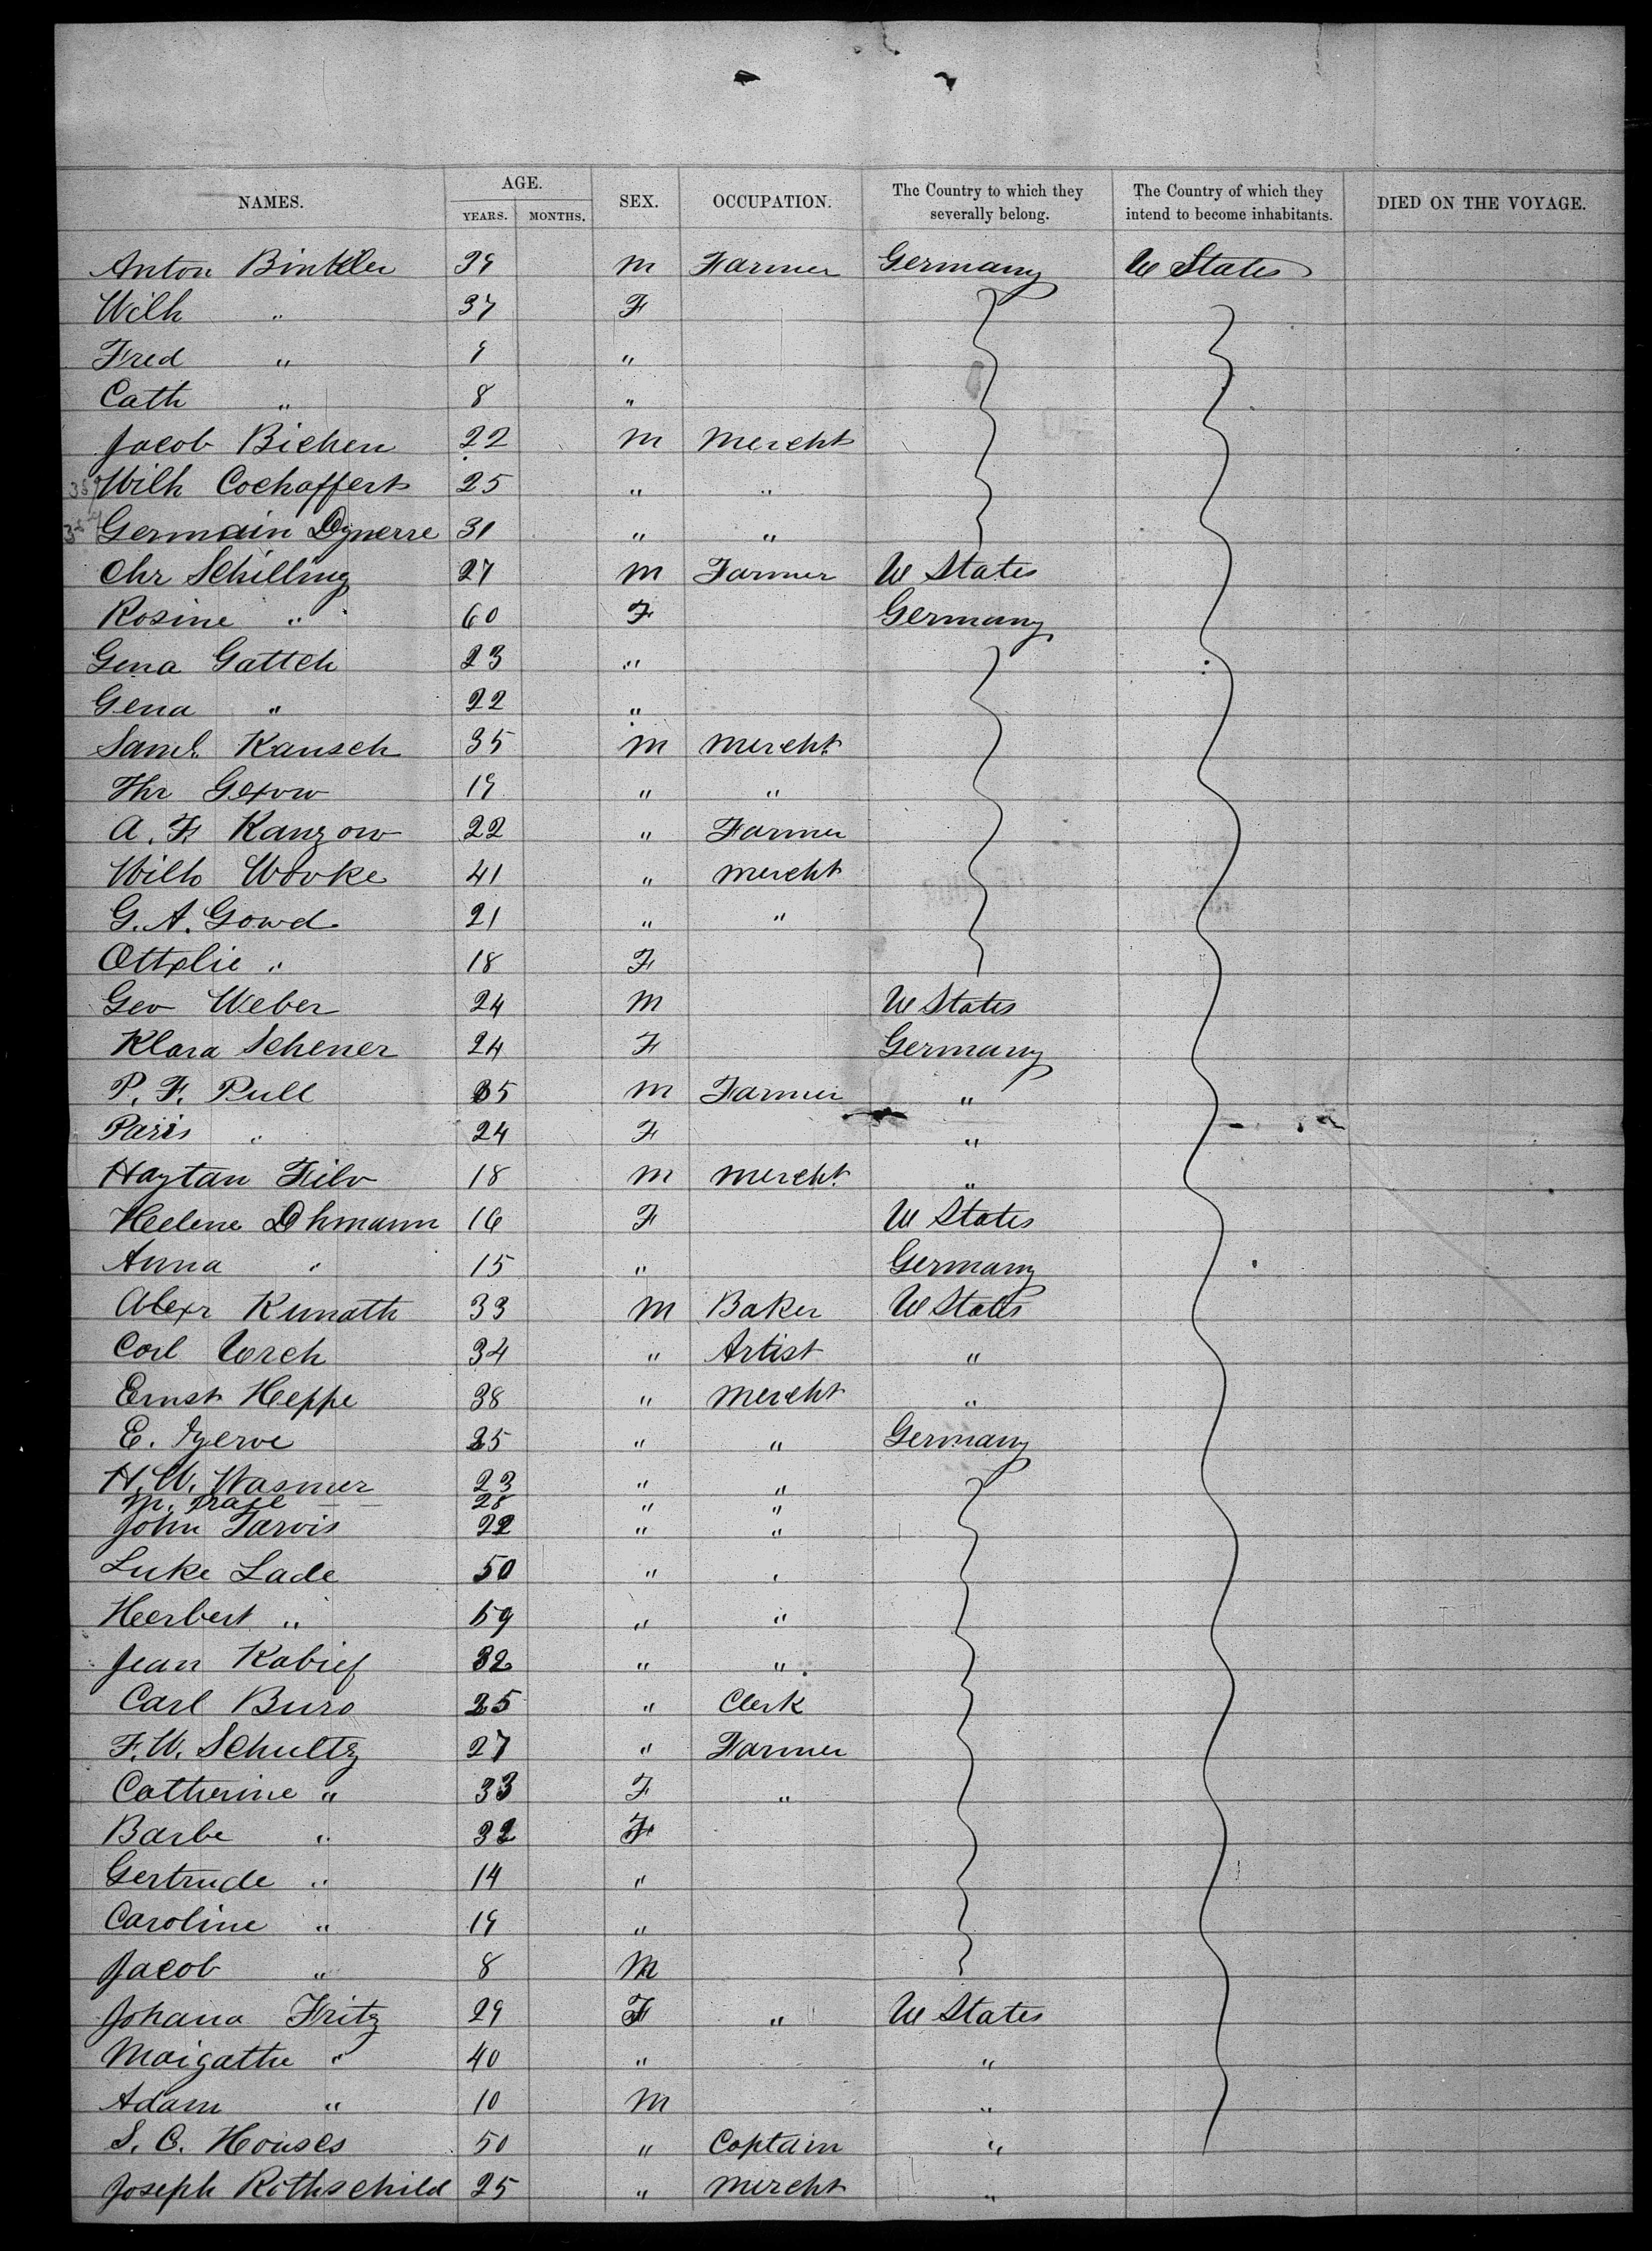 NAMES. AGE. YEARS. MONTHS. SEX. OCCUPATION. The Country to which they severally belong. The Country of which they intend to become inhabitants. DIED ON THE VOYAGE.
Anton Binkler 39 M Farmer Germany U States
Wilh " 37 F
Fred " 9 "
Cath " 8 "
Jacob Bichen 22 M Mercht
Wilh Cochaffert 25 " "
Germain Dynerre 31 " "
Chr Schilling 27 M Farmer U States
Rosine " 60 F Germany
Gena Gattch 23 "
Gena " 22 "
Saml. Kausch 35 M Mercht
Thr Gexow 19 " "
A. F. Kanzow 22 " Farmer
Wilh Wovke 41 " Mercht
G. A. Gowd 21 " "
Ottolie " 18 F
Geo Weber 24 M U States
Klara Schener 24 F Germany
P. F. Pull 35 M Farmer "
Paris " 24 F "
Haytan Filo 18 M Mercht. "
Helene Ohmann 16 F U States
Anna " 15 " Germany
Alexr Kunath 33 M Baker U States
Carl Lorch 34 " Artist "
Ernst Heppe 38 " Mercht "
E. 25 " " Germany
H. W. Wasmer 23 " "
M. 28 " "
John Jarvis 22 " "
Luke Lade 50 " "
Herbert " 59 " "
Jean Kabief 32 " "
Carl Buro 25 " Clerk
F. W. Schultz 27 " Farmer
Catherine " 33 F "
Barbe " 32 F
Gertrude " 14 "
Caroline " 19 "
Jacob " 8 M
Johana Fritz 29 F " U States
Maigathe " 40 " "
Adam " 10 M "
S. C. Houses 50 " Captain "
Joseph Rothschild 25 " Mercht "